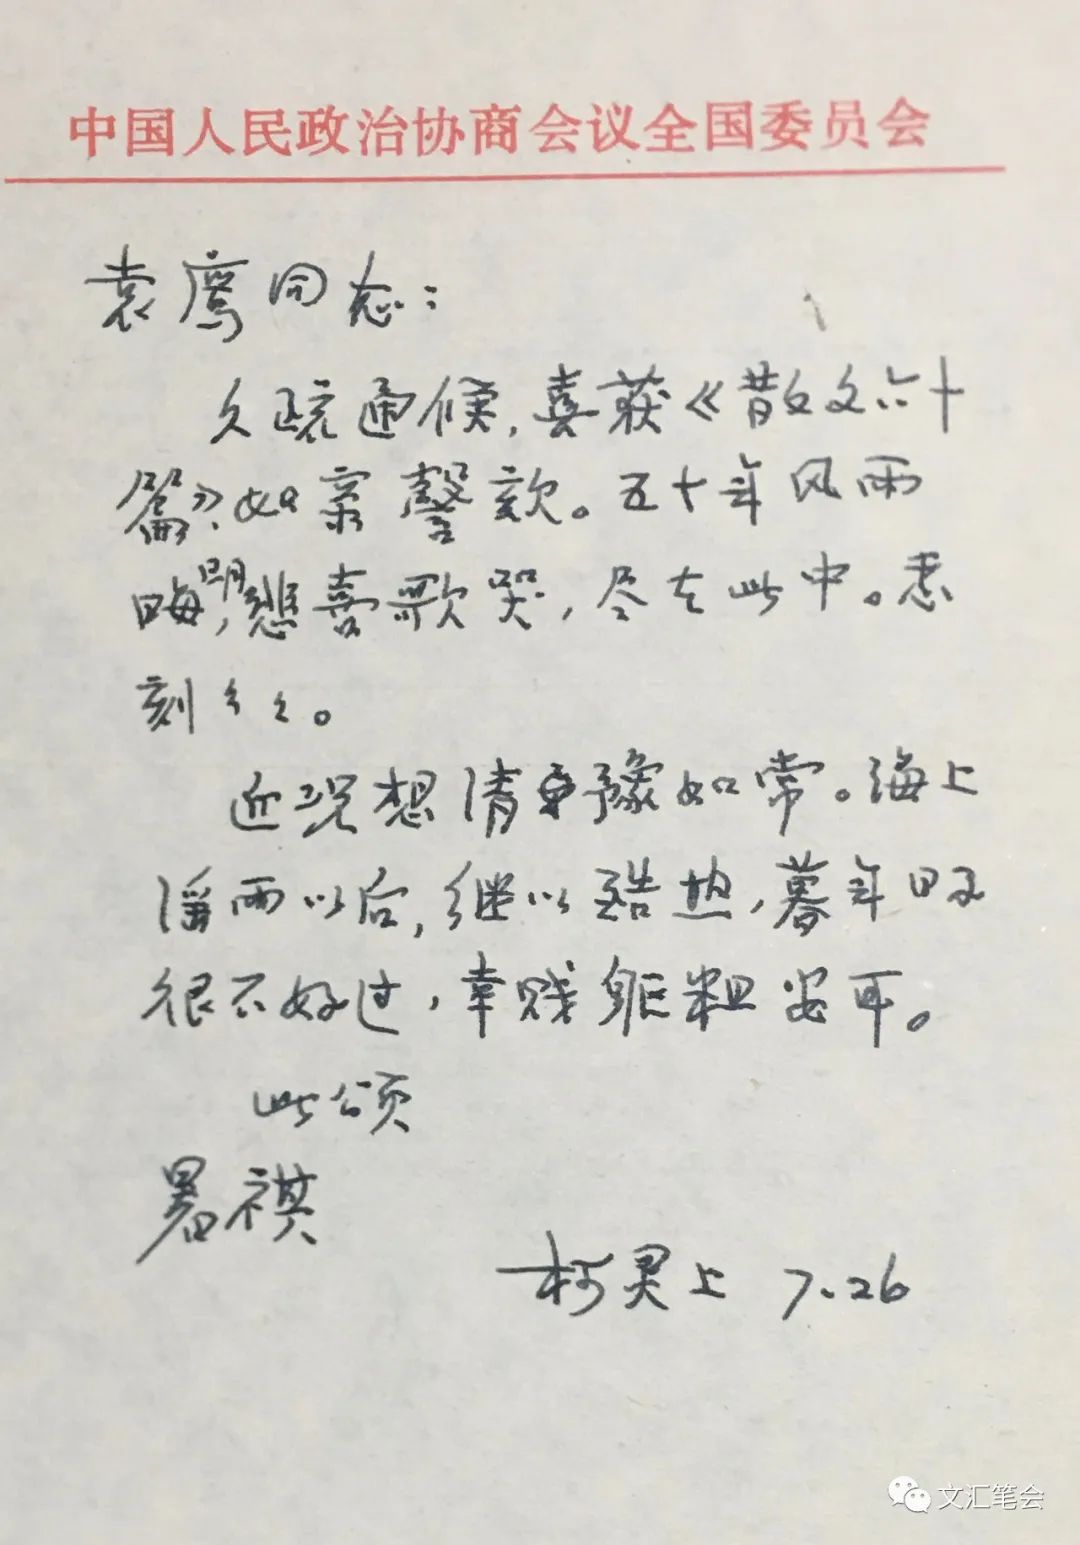 中国人民政治协商会议全国委员会
袁鹰同志：
久疏通候，喜获《散文六十
篇》，如亲謦欬。五十年风雨
晦明，悲喜歌哭，尽在此中。
刻〻〻。
近况想清豫如常。海上
淫雨以后，继以酷热，暮年日子
很不好过，幸贱躯粗安耳。
此颂
暑祺
柯灵上 7.26
文汇笔会